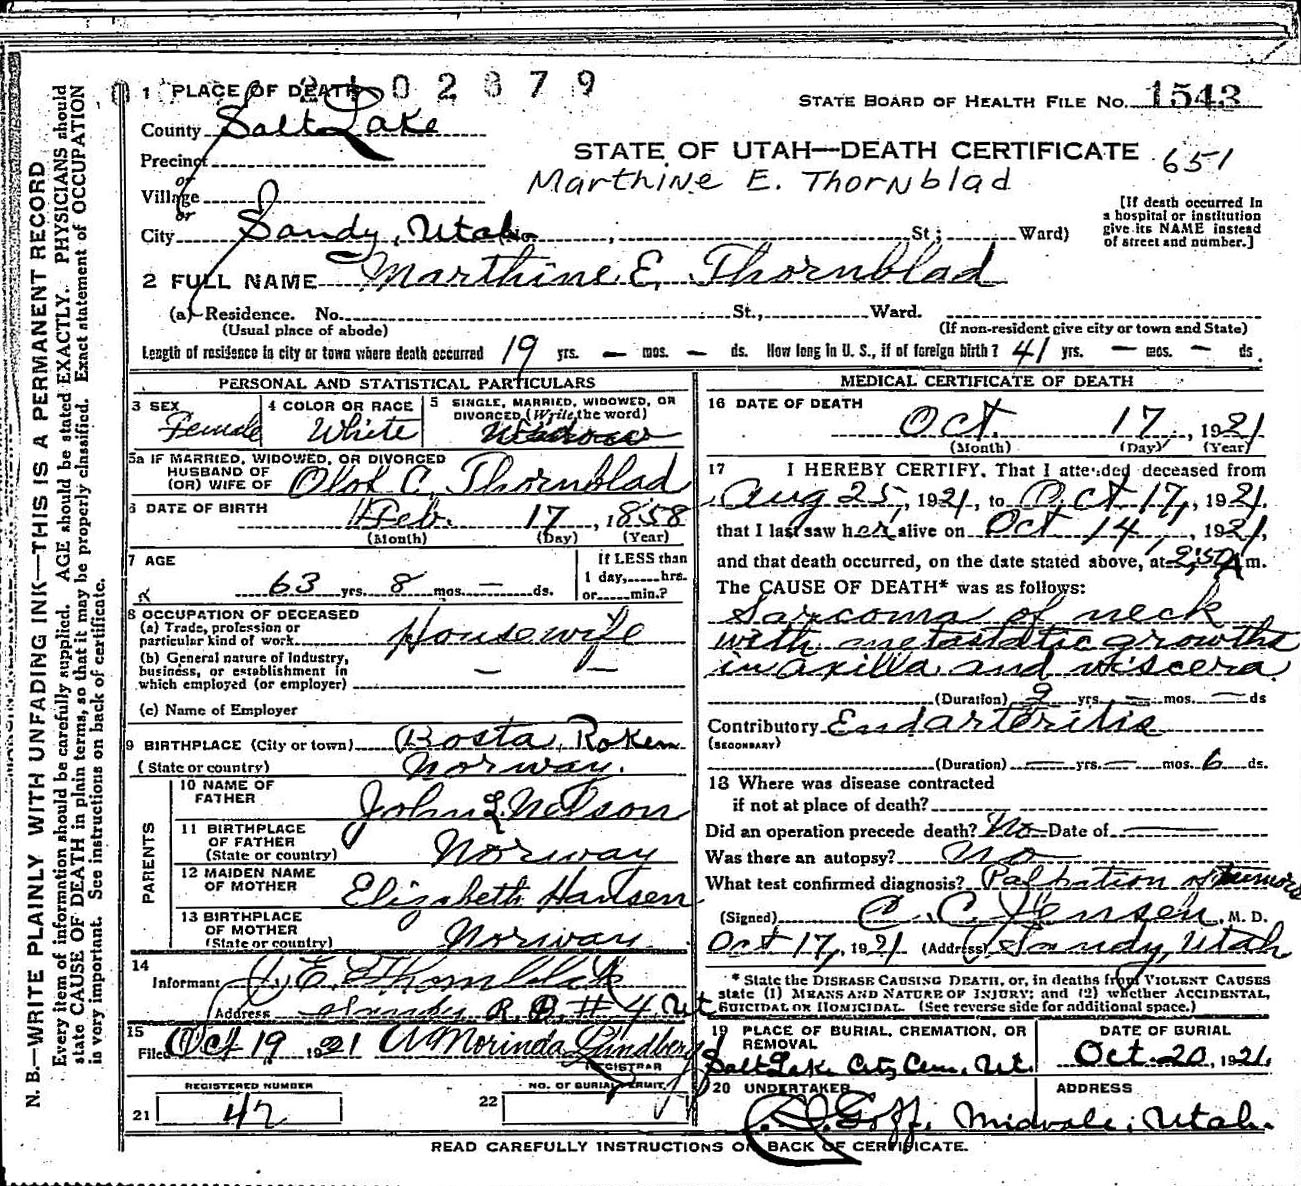 1 PLACE OF DEATH 02879
STATE BOARD OF HEALTH FILE NO. 1543
County Salt Lake
STATE OF UTAH—DEATH CERTIFICATE 651
Precinct
or
Marthine E. Thornblad
Village
or
[If death occurred in
a hospital or institution
give its NAME instead
of street and number.]
City Sandy, Utah No. , St; Ward)
2 FULL NAME Marthine E. Thornblad
(a) Residence. No. St., Ward.
(Usual place of abode) (If non-resident give city or town and State)
Length of residence in city or town where death occurred 19 yrs. — mos. — ds. How long in U. S., if of foreign birth? 41 yrs. — mos. — ds.
PERSONAL AND STATISTICAL PARTICULARS
3 SEX
Female
4 COLOR OR RACE
White
5 SINGLE, MARRIED, WIDOWED, OR
DIVORCED (Write the word)
Widow
5a IF MARRIED, WIDOWED, OR DIVORCED
HUSBAND OF
(OR) WIFE OF Olof C. Thornblad
6 DATE OF BIRTH Feb. 17, 1858
(Month) (Day) (Year)
7 AGE
63 yrs. 8 mos. — ds.
If LESS than
1 day, hrs.
or min.?
8 OCCUPATION OF DECEASED
(a) Trade, profession or
particular kind of work Housewife
(b) General nature of industry,
business, or establishment in
which employed (or employer) — —
(c) Name of Employer
9 BIRTHPLACE (City or town) Bosta, Roken
(State or country) Norway.
PARENTS
10 NAME OF
FATHER John L. Nelson
11 BIRTHPLACE
OF FATHER
(State or country) Norway
12 MAIDEN NAME
OF MOTHER Elizabeth Hansen
13 BIRTHPLACE
OF MOTHER
(State or country) Norway
14
Informant E. Thornblad
Address Sandy R.D. #4, Ut
15
Filed Oct 19 1921 Morinda Lundberg
REGISTRAR
REGISTERED NUMBER
21 42
NO. OF BURIAL PERMIT
22
MEDICAL CERTIFICATE OF DEATH
16 DATE OF DEATH
Oct. 17, 1921
(Month) (Day) (Year)
17 I HEREBY CERTIFY, That I attended deceased from
Aug 25, 1921, to Oct 17, 1921,
that I last saw her alive on Oct 14, 1921,
and that death occurred, on the date stated above, at 2:50 A m.
The CAUSE OF DEATH* was as follows:
Sarcoma of neck
with metastatic growths
in axilla and viscera
(Duration) 2 yrs. — mos. — ds
Contributory Endarteritis
(SECONDARY)
(Duration) — yrs. — mos. 6 ds.
18 Where was disease contracted
if not at place of death?
Did an operation precede death? No Date of —
Was there an autopsy? No
What test confirmed diagnosis? Palpation of tumors
(Signed) C. C. Jensen, M. D.
Oct 17, 1921 (Address) Sandy, Utah
* State the DISEASE CAUSING DEATH, or, in deaths from VIOLENT CAUSES
state (1) MEANS AND NATURE OF INJURY; and (2) whether ACCIDENTAL,
SUICIDAL OR HOMICIDAL. (See reverse side for additional space.)
19 PLACE OF BURIAL, CREMATION, OR
REMOVAL
Salt Lake City Cem, Ut.
DATE OF BURIAL
Oct. 20, 1921.
20 UNDERTAKER
Goff.
ADDRESS
Midvale, Utah.
READ CAREFULLY INSTRUCTIONS ON BACK OF CERTIFICATE.
N. B.—WRITE PLAINLY WITH UNFADING INK—THIS IS A PERMANENT RECORD
Every item of information should be carefully supplied. AGE should be stated EXACTLY. PHYSICIANS should
state CAUSE OF DEATH in plain terms, so that it may be properly classified. Exact statement of OCCUPATION
is very important. See instructions on back of certificate.